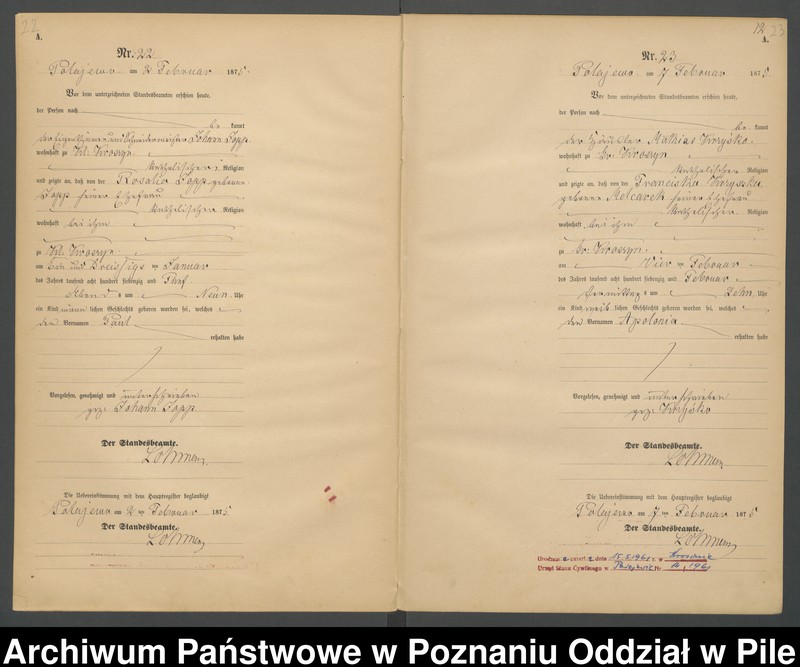 22
A.
Nr. 22
Polajewo am 2 Februar 1875.
Vor dem unterzeichneten Standesbeamten erschien heute,
der Person nach
be kannt
Johann Topp
wohnhaft zu Kl. Kroszyn
katholischer Religion
und zeigte an, daß von der Rosalie Topp geborene
Topp seiner Ehefrau
katholischer Religion
wohnhaft bei ihm
zu Kl. Kroszyn
am und Dreißigs ten Januar
des Jahres tausend acht hundert siebenzig und Fünf
Abends um Neun Uhr
ein Kind männlichen Geschlechts geboren worden sei, welches
den Vornamen Paul
erhalten habe
Vorgelesen, genehmigt und unterschrieben
gez. Johann Topp
Der Standesbeamte.
Die Uebereinstimmung mit dem Hauptregister beglaubigt
Polajewo am 2 ten Februar 1875.
Der Standesbeamte.
12 23
A.
Nr. 23
Polajewo am 7 Februar 1875.
Vor dem unterzeichneten Standesbeamten erschien heute,
der Person nach
be kannt
der Häusler Mathias
wohnhaft zu Gr. Kroszyn
katholischer Religion
und zeigte an, daß von der Franciska
geborene Melcarek seiner Ehefrau
katholischer Religion
wohnhaft bei ihm
zu Gr. Kroszyn
am Vier ten Februar
des Jahres tausend acht hundert siebenzig und Februar
Vormittag um Zehn Uhr
ein Kind weiblichen Geschlechts geboren worden sei, welches
den Vornamen Apolonia
erhalten habe
Vorgelesen, genehmigt und unterschrieben
gez.
Der Standesbeamte.
Die Uebereinstimmung mit dem Hauptregister beglaubigt
Polajewo am 7 ten Februar 1875
Der Standesbeamte.
dnia 15.5.1961 r. w
Urząd Stanu Cywilnego w Nr
Archiwum Państwowe w Poznaniu Oddział w Pile